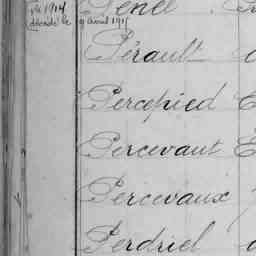 1914
décédé le 9 avril 1915
Penel
Pérault
Percepied
Percevaut
Percevaux
Perdriel